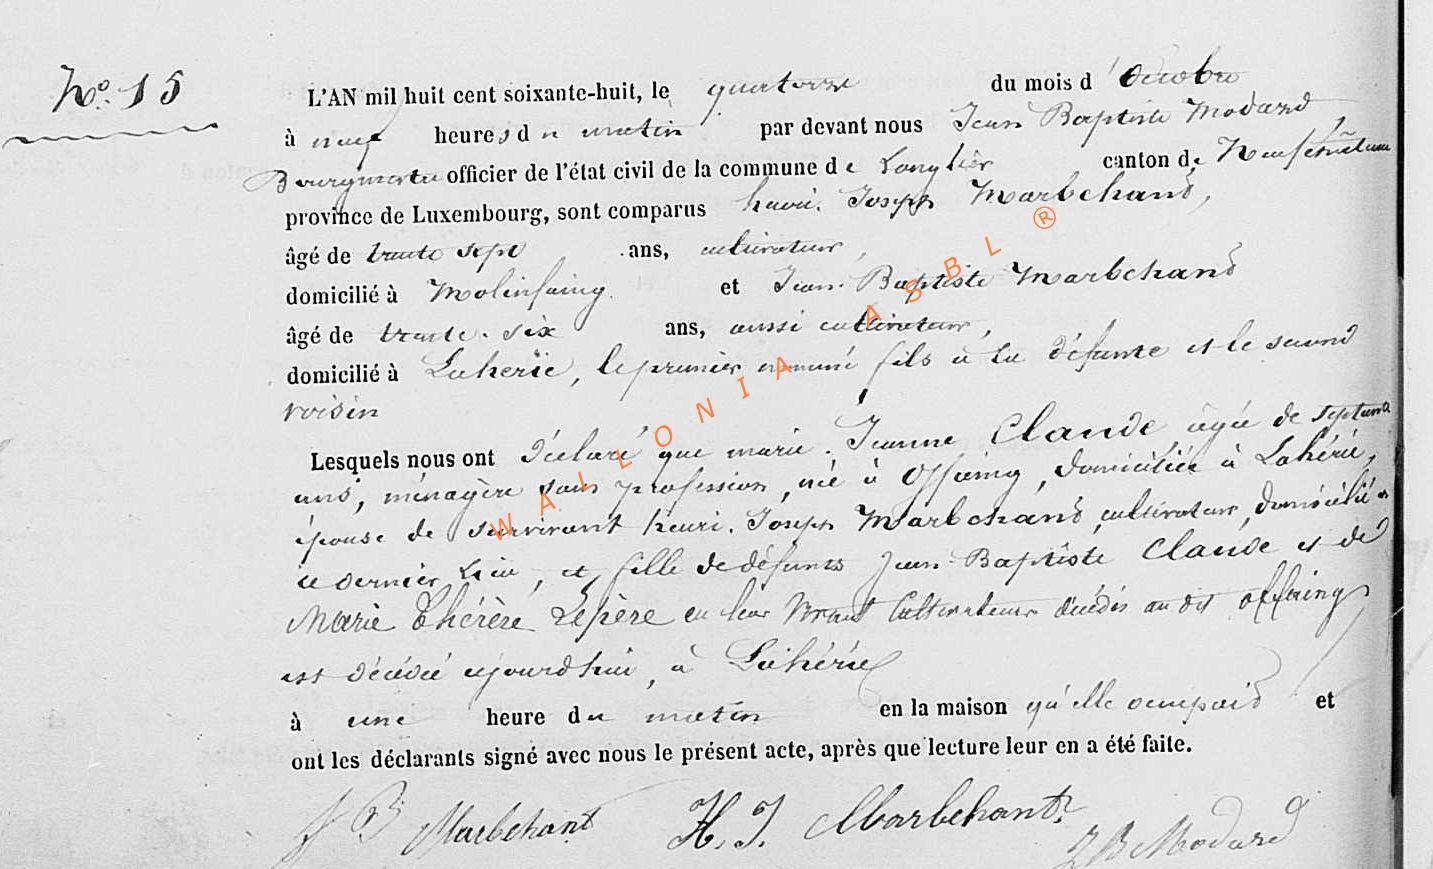 N.° 15
L'AN mil huit cent soixante-huit, le quatorze du mois d'Octobre
à neuf heures du matin par devant nous Jean Baptiste Modard
Bourgmestre officier de l'état civil de la commune de Longlier canton de Neufchâteau
province de Luxembourg, sont comparus henri. Joseph Marbehand,
âgé de trente sept ans, cultivateur,
domicilié à Molinfaing. et Jean-Baptiste Marbehand
âgé de trente-six ans, aussi cultivateur,
domicilié à Lahérie, le premier nommé fils à la défunte et le second
voisin
Lesquels nous ont déclaré que marie. Jeanne Claude, âgée de septante
ans, ménagère sans profession, née à Offaing, domiciliée à Lahérie,
épouse de survivant henri. Joseph Marbehand, cultivateur, domicilié
ce dernier lieu, et fille de défunts Jean-Baptiste Claude et de
Marie Thérèse Lepère en leur vivant Cultivateurs décédés au dit offaing
est décédée ajourdhui, à Lahérie
à une heure du matin en la maison qu'elle occupait et
ont les déclarants signé avec nous le présent acte, après que lecture leur en a été faite.
J B Marbehant H. J. Marbehant. J B Modard
WALLONIA ASBL ®